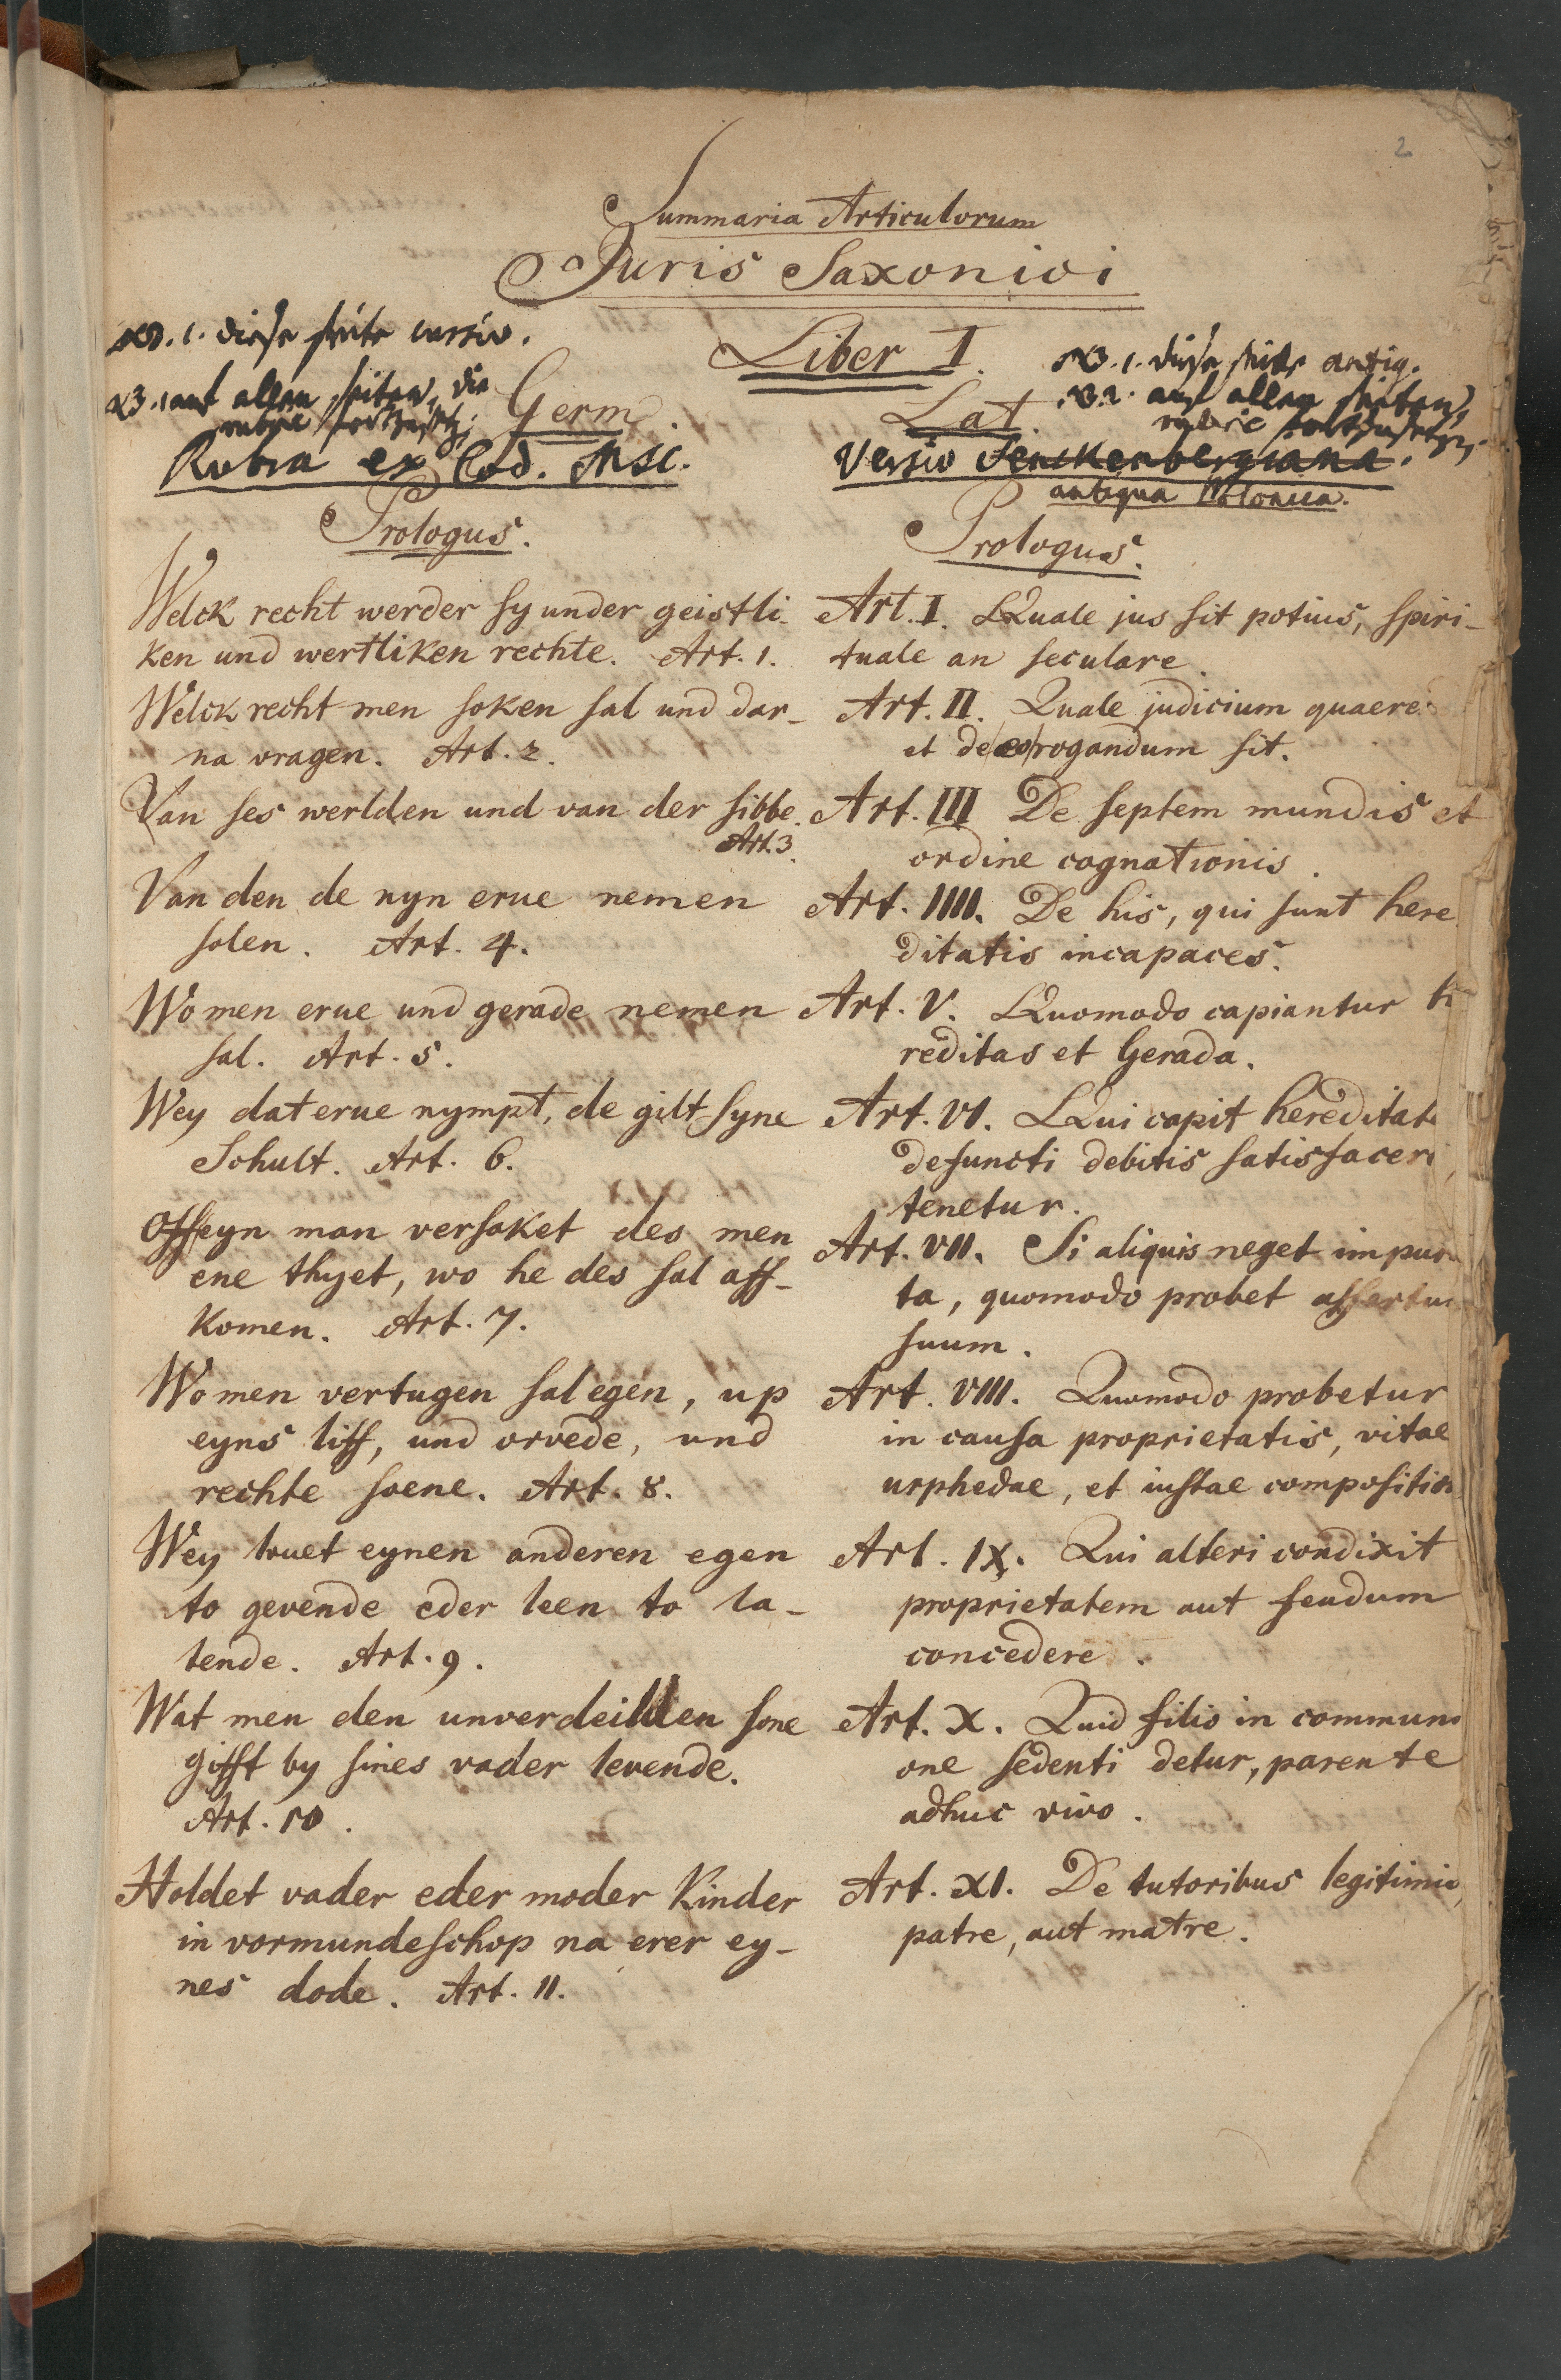 2
Summaria Articulorum
Juris Saxonici
Liber I.
NB. 1. diese seite cursiv.
auf allen seiten, die
Germ.
Rubra ex Cod. Msc.
Prologus.
Welck recht werder sy under geistli-
ken und wertliken rechte. Art. 1.
Welck recht men soken sal und dar-
na vragen. Art. 2.
Van ses werlden und van der sibbe.
Art. 3.
Van den de nyn erue nemen
solen. Art. 4.
Wo men erue und gerade nemen
sal. Art. 5.
Wey dat erue nympt, de gilt syne
Schult. Art. 6.
Off eyn man versaket des men
ene thyet, wo he des sal aff-
komen. Art. 7.
Wo men vertugen sal egen, up
eyns liff, und orvede, und
rechte soene. Art. 8.
Wey louet eynen anderen egen
to gevende eder leen to la-
tende. Art. 9.
Wat men den unverdeilden sone
gifft by sines vader levende.
Art. 10.
Holdet vader eder moder Kinder
in vormundeschop na erer ey-
nes dode. Art. 11.
NB. 1. diese seite antiq.
NB. 2. auf allen seiten,
Lat.
Versio Senckenbergiana.
antiqua Polonica.
Prologus.
Art. I. Quale jus sit potius, spiri-
tuale an seculare.
Art. II. Quale judicium quaere
et de rogandum sit.
Art. III De septem mundis et
ordine cognationis.
Art. IIII. De his, qui sunt here
ditatis incapaces.
Art. V. Quomodo capiantur h
reditas et Gerada.
Art. VI. Qui capit hereditat
defuncti debitis satisfacer
tenetur.
Art. VII. Si aliquis neget impu
ta, quomodo probet assertu
suum.
Art. VIII. Quomodo probetur
in causa proprietatis, vitae
urphedae, et iustae compositio
Art. IX. Qui alteri condixit
proprietatem aut feudum
concedere.
Art. X. Quid filio in commun
one sedenti detur, parente
adhuc vivo.
Art. XI. De tutoribus legitimis,
patre, aut matre.